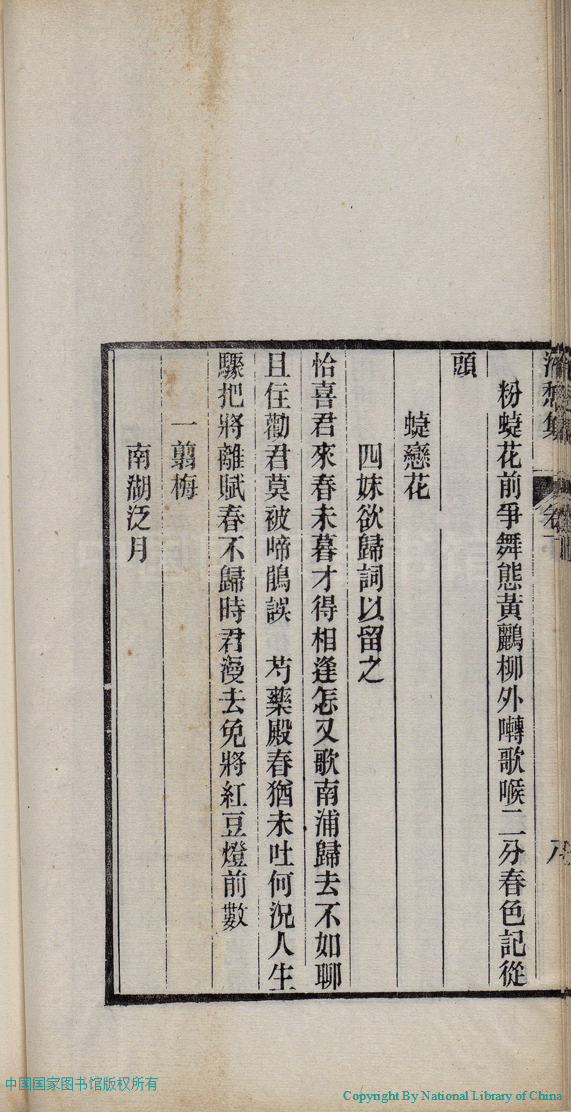 粉蜨花前爭舞態黃鸝柳外囀歌喉二分春色記從
頭
蜨戀花
四妹欲歸詞以留之
恰喜君來春未暮才得相逢怎又歌南浦歸去不如聊
且住勸君莫被啼鵑誤　芍藥殿春猶未吐何況人生
驟把將離賦春不歸時君漫去免將紅豆燈前數
一翦梅
南湖泛月
中国国家图书馆版权所有
Copyright By National Library of China